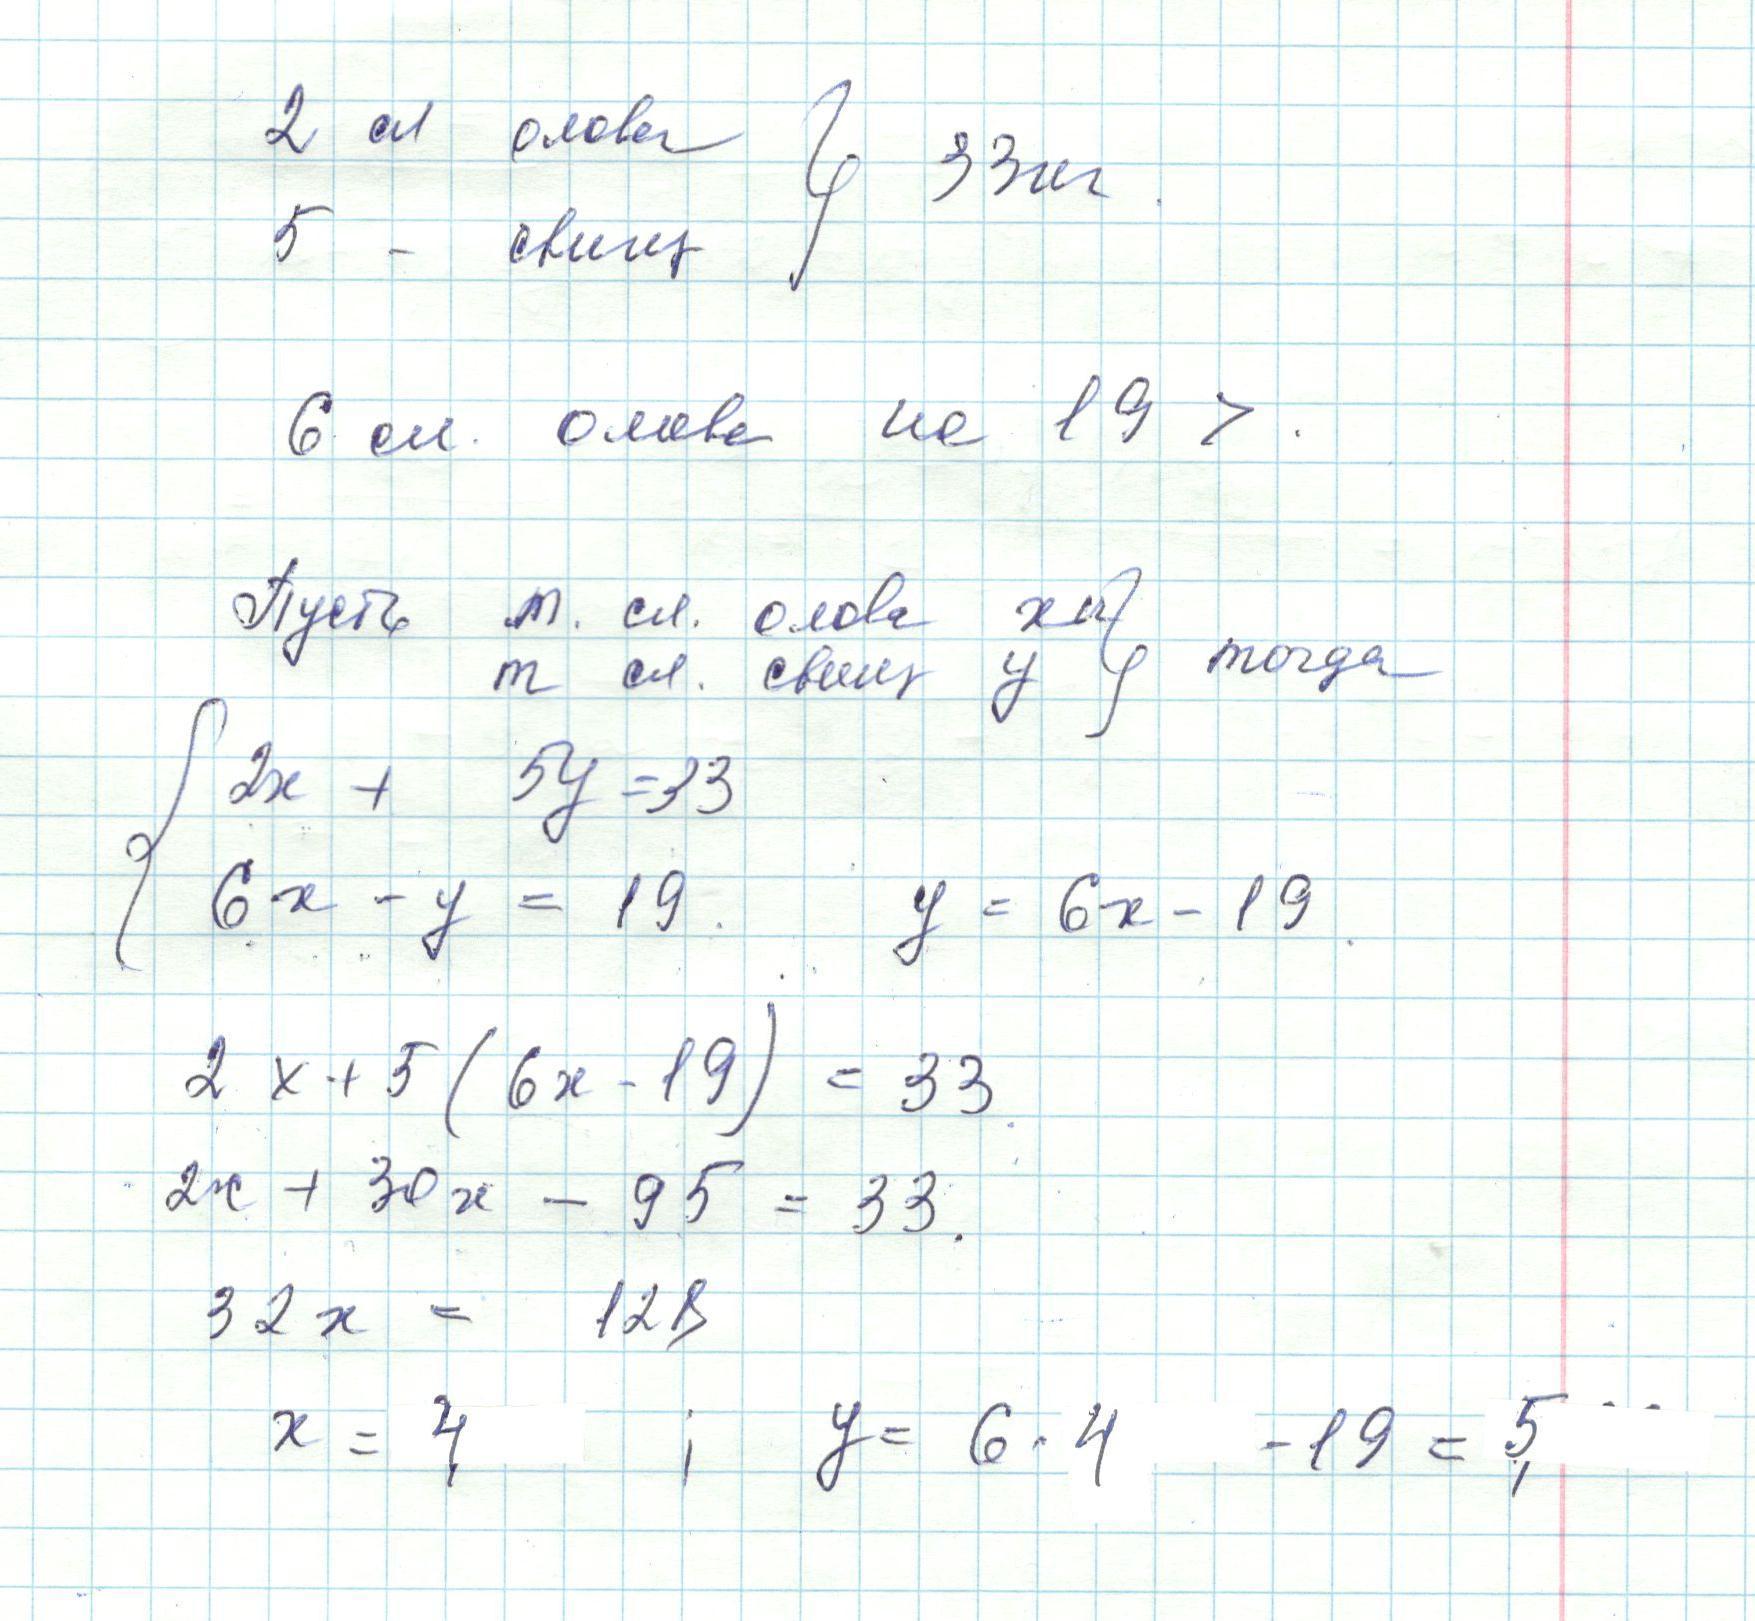 2 сл олова } 33кг.
5 - свинц
6 сл. олова на 19 > .
Пусть м. сл. олова х кг } тогда
м сл. свинц у
2x + 5y = 33
6x - y = 19. y = 6x - 19.
2x + 5(6x - 19) = 33.
2x + 30x - 95 = 33.
32x = 128
x = 4 ; y = 6 · 4 - 19 = 5